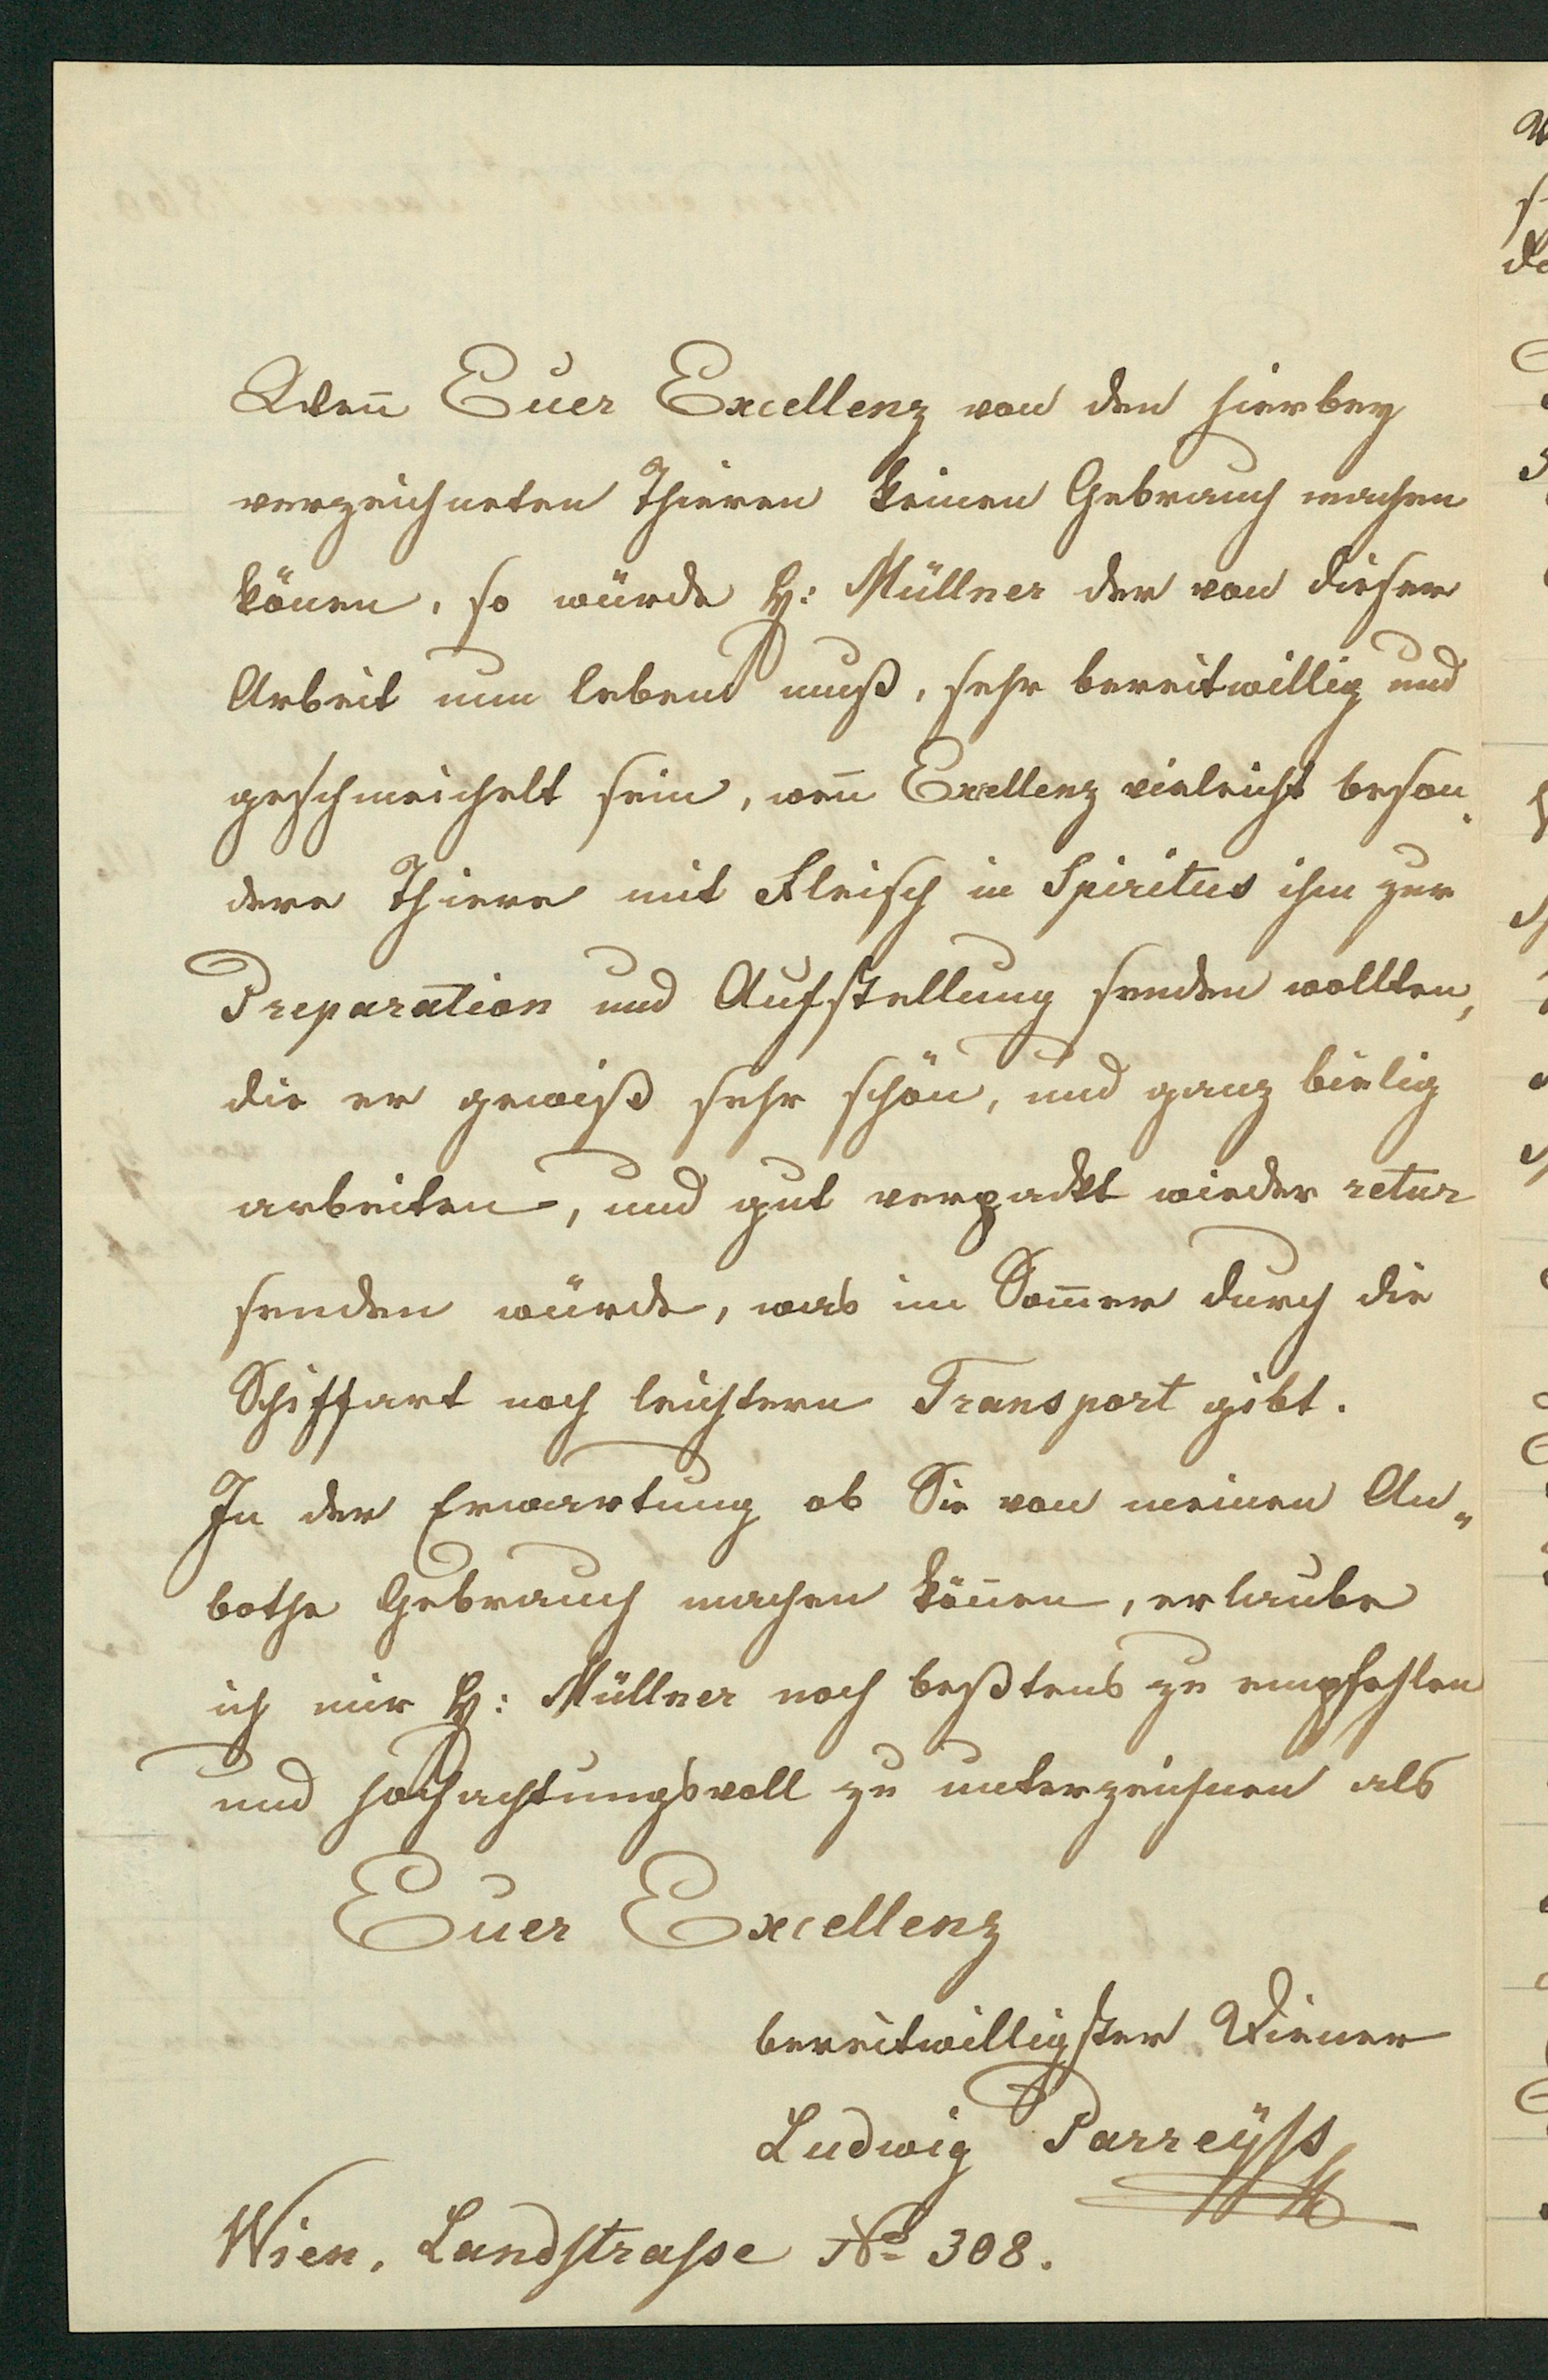 Wenn̄ Euer Excellenz von den hierbey
verzeichneten Thieren keinen Gebrauch machen
könen, so würde H: Müllner der von dieser
Arbeit nun leben muß, sehr bereitwillig und
geschmeichelt sein, wen̄ Excellenz vieleicht beson„
dere Thiere mit Fleisch in Spiritus ihm zur
Preparation und Aufstellung senden wollten,
die er gewiß sehr schön, und ganz bielig
arbeiten, und gut verpackt wieder retur
senden würde, was im Som̄er durch die
Schiffart noch leichtern Transport gibt.
In der Erwartung ob Sie von meinen An„
bothe Gebrauch machen kön̄en, erlaube
ich mir H: Müllner noch beßtens zu empfehlen
und hochachtungsvoll zu unterzeichnen als
Euer Excellenz
bereitwilligster Diener
Ludwig Parreÿss
Wien, Landstrasse No 308.